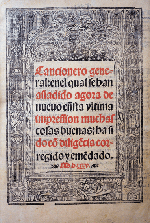 Cancionero gene-
ral: en el qual se han
añadido agora de
nuevo en esta ultima
impression muchas
cosas buenas: ha si
do con diligencia cor-
regido y emẽdado.